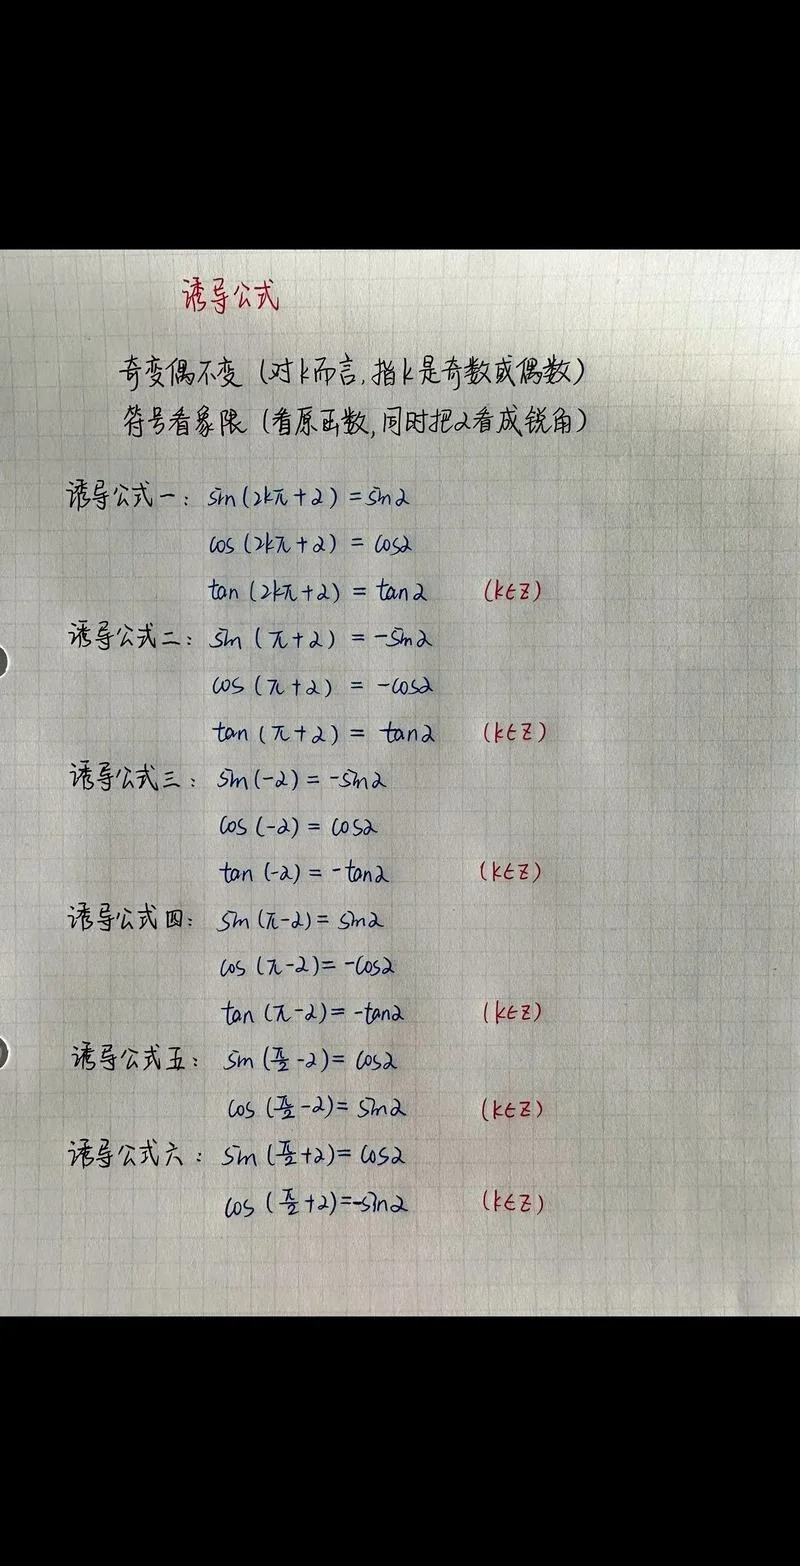 诱导公式
奇变偶不变（对k而言,指k是奇数或偶数）
符号看象限（看原函数,同时把α看成锐角）
诱导公式一：sin(2kπ+α)=sinα
cos(2kπ+α)=cosα
tan(2kπ+α)=tanα (k∈Z)
诱导公式二：sin(π+α)=-sinα
cos(π+α)=-cosα
tan(π+α)=tanα (k∈Z)
诱导公式三：sin(-α)=-sinα
cos(-α)=cosα
tan(-α)=-tanα (k∈Z)
诱导公式四：sin(π-α)=sinα
cos(π-α)=-cosα
tan(π-α)=-tanα (k∈Z)
诱导公式五：sin(π/2-α)=cosα
cos(π/2-α)=sinα (k∈Z)
诱导公式六：sin(π/2+α)=cosα
cos(π/2+α)=-sinα (k∈Z)